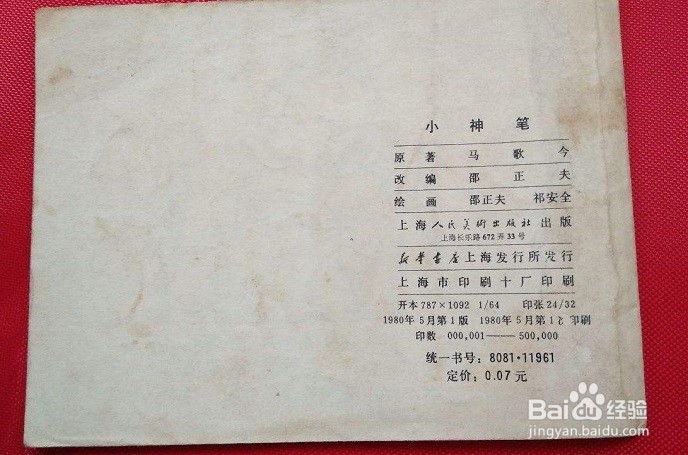 小神笔
原著 马歌今
改编 邵正夫
绘画 邵正夫 祁安全
上海人民美術出版社出版
上海长乐路672弄33号
新华书店上海发行所发行
上海市印刷十厂印刷
开本787×1092 1/64 印张24/32
1980年5月第1版 1980年5月第1 印刷
印数 000,001——500,000
统一书号：8081·11961
定价：0.07元
Baidu经验
jingyan.baidu.com